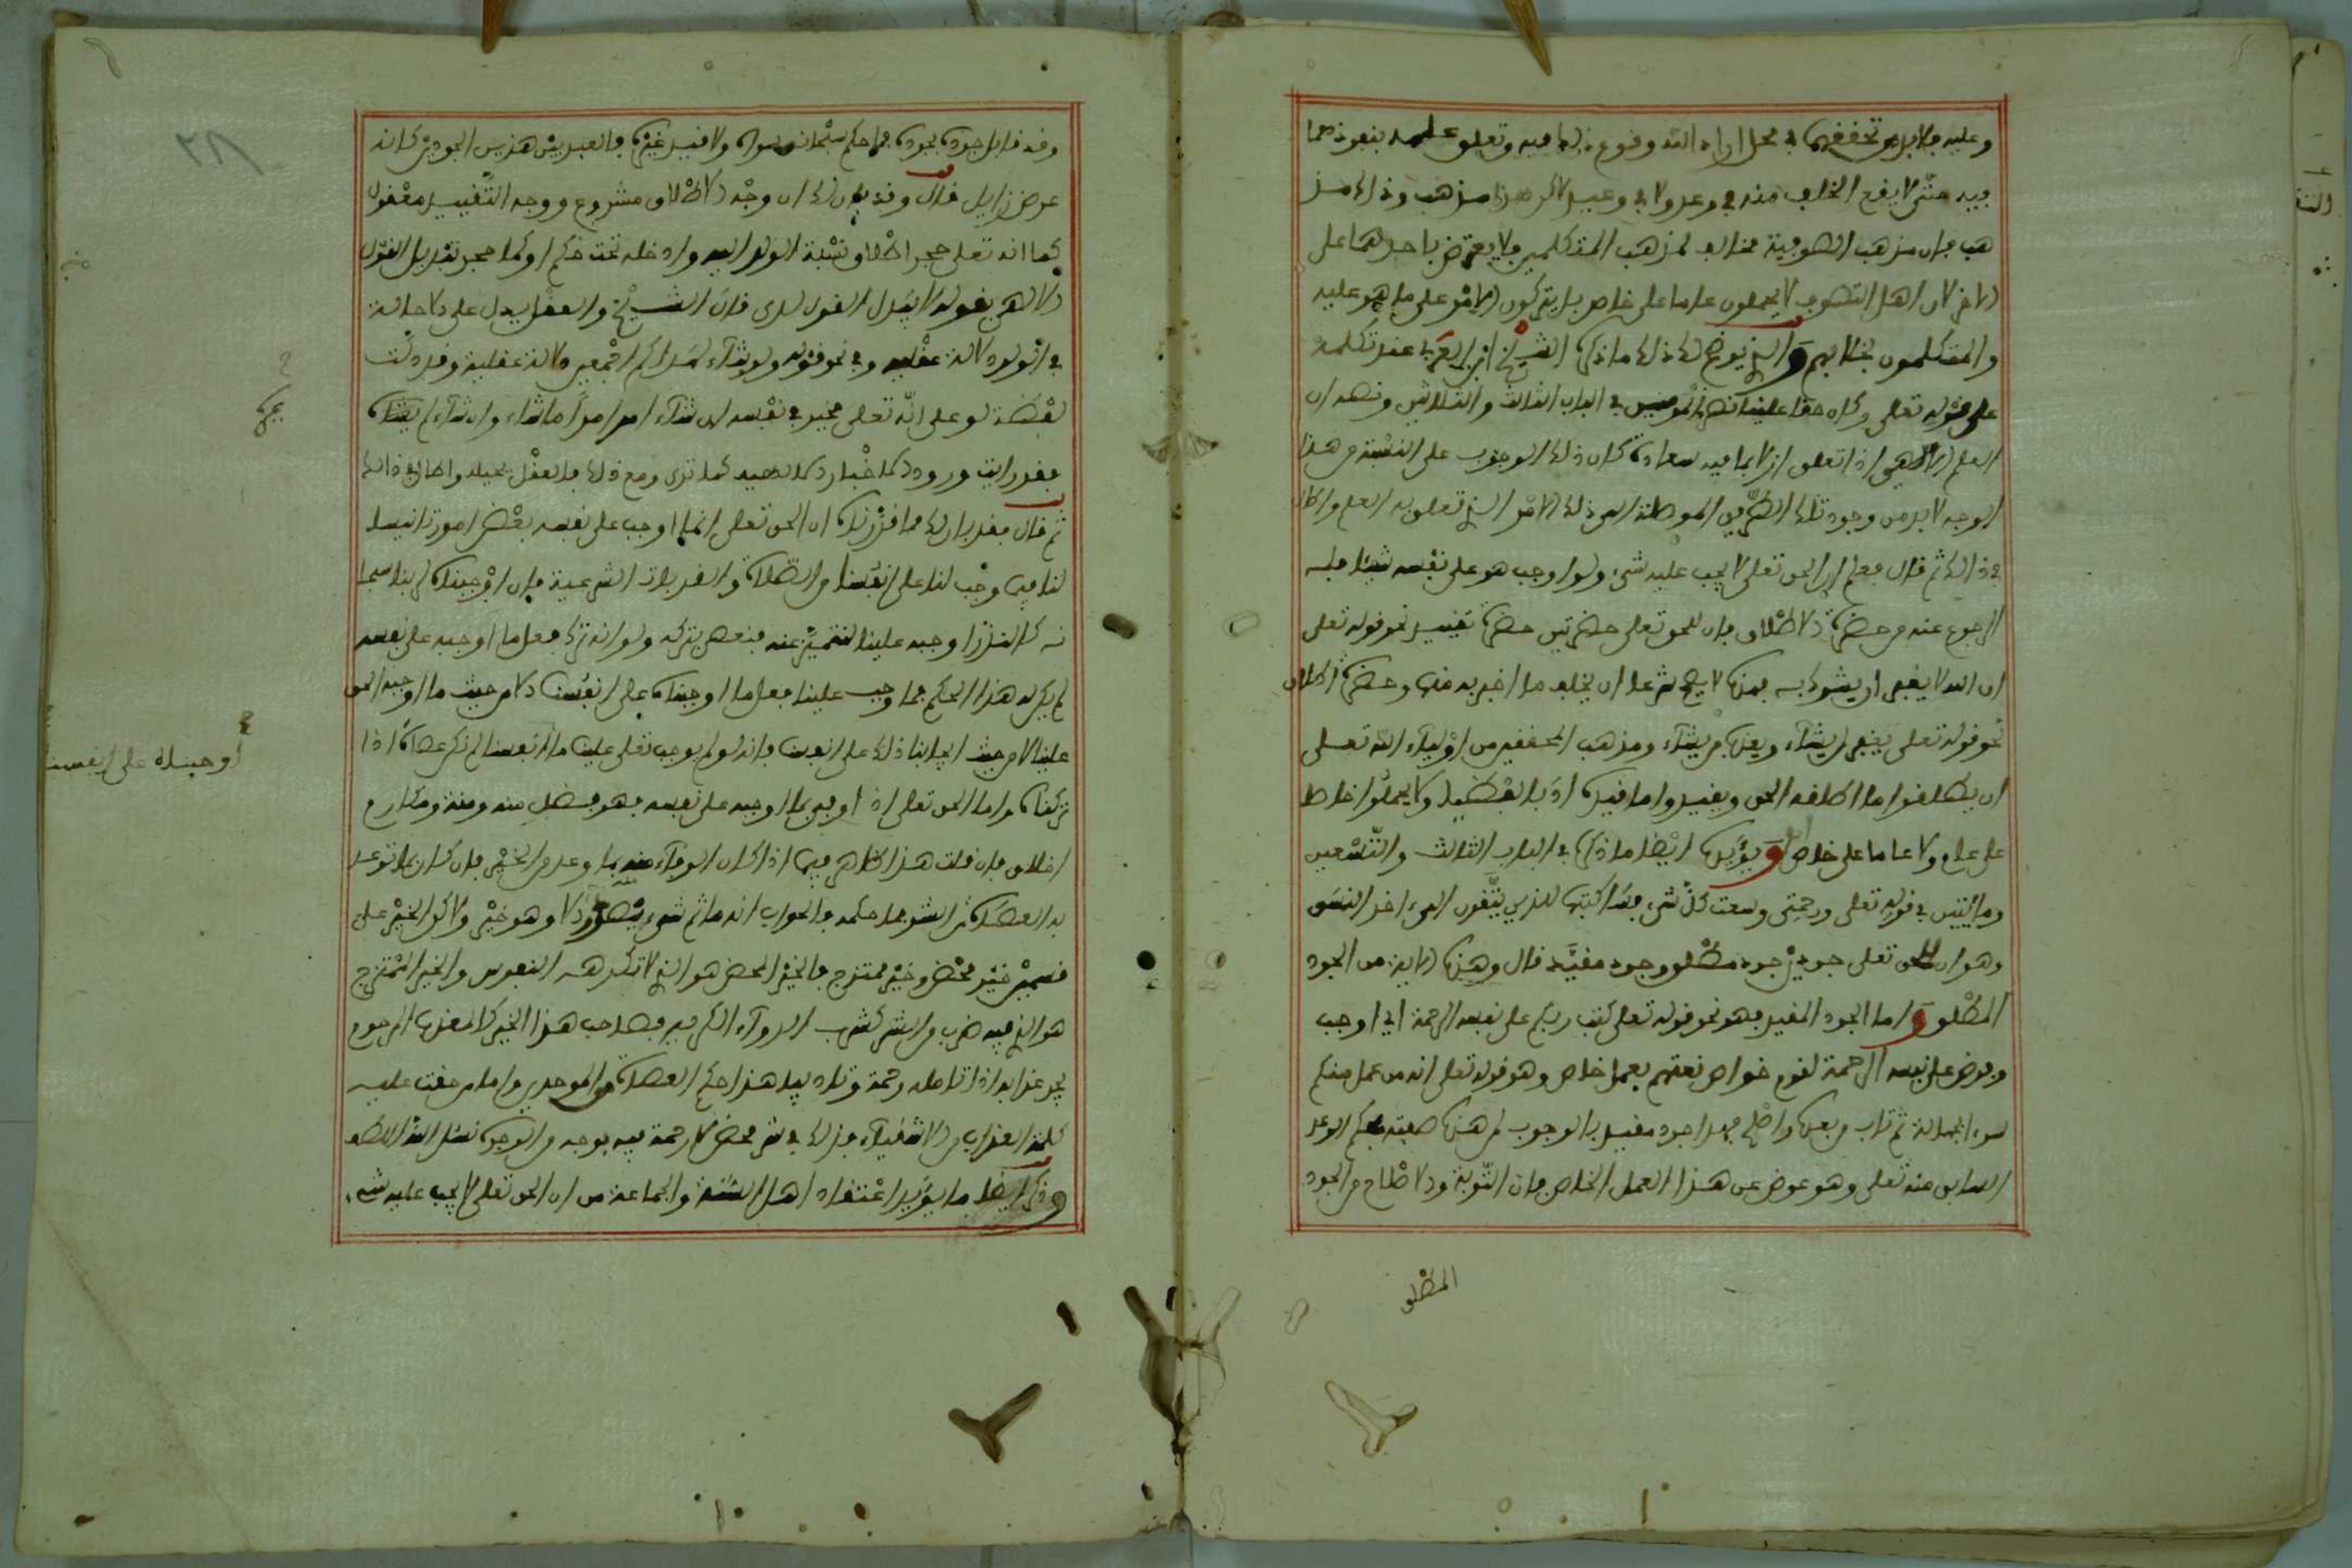 وعليه فلابد من تحققهما في محل اراد الله وقوع ذلك فيه وتعلق علمه بنفوذهما
فيه حتى لا يقع الخلف منه في وعد ولا في وعيد لاكن هذا مذهب وذاك مذ
هب فإن مذهب الصوفية مخالف لمذهب المتكلمين فلا يعترض باحدهما على
الاخر لان اهل التصوف لا يحملون عاما على خاص بل يتركون الامر على ما هو عليه
والمتكلمون بخلافهم والذي يوضح لك ذلك ما ذكره الشيخ ابن العربي عند تكلمه
على قوله تعلى وكان حقا علينا نصر المومنين في الباب الثالث والثلاثين ونصه ان
العلم الالهي اذا تعلق ازلا بما فيه سعادة كان ذلك الوجوب على النسبة من هذا
الوجه لابد من وجود تلك الطريق الموصلة الى ذلك الامر الذي تعلق به العلم واطال
في ذلك ثم قال فعلم ان الحق تعلى لا يجب عليه شيء ولو اوجب هو على نفسه شيئا فله
الرجوع عنه من حضرة الاطلاق فان للحق تعلى حضرتين حضرة تقييد نحو قوله تعلى
ان الله لا يغفر ان يشرك به فهذه لا يصح شرعا ان يخلف ما اخبر به فيها وحضرة اطلاق
نحو قوله تعلى يغفر لمن يشاء ويعذب من يشاء ومذهب المحققين من اولياء الله تعلى
ان يطلقوا ما اطلقه الحق ويقيدوا ما قيده ادبا لفظيا ولا يحملوا خاصا
على عام ولا عاما على خاص ويؤيده ايضا ما ذكره في الباب الثالث والتسعين
ومائتين في قوله تعلى ورحمتي وسعت كل شيء فسأكتبها للذين يتقون الى ءاخر النسق
وهو ان للحق تعلى جودين جود مطلق وجود مقيد قال وهذه الاية من الجود
المطلق واما الجود المقيد فهو نحو قوله تعلى كتب ربكم على نفسه الرحمة اي اوجب
وفرض على نفسه الرحمة لقوم خواص نعتهم بعمل خاص وهو قوله تعلى انه من عمل منكم
سوءا بجهالة ثم تاب من بعده واصلح فهذا جود مقيد بالوجوب لمن هذه صفته بحكم الوعد
السابق منه تعلى وهو عوض عن هذا العمل الخاص فان التوبة والاصلاح من الجود
المطلق
وقد قابل جوده بجوده فما حكم سبحانه سواه ولا قيده غيره فالعبد بين هذين الجودين كانه
عرض زايل قال وقد بان لك ان وجه الاطلاق مشروع ووجه التقييد معقول
كما انه تعلى حجر اطلاق نسبة الولد اليه وادخله تحت حكم لو كما حجر تبديل القول
الالهي بقوله لا يبدل القول لدي قال الشيخ والعقل يدل على الاحالة
في الولد دلالة عقلية وفي نحو قوله ولو شاء لهداكم اجمعين دلالة عقلية وقد دلت
لفظة لو على انه تعلى مخير في نفسه ان شاء امرا مرا ما شاء وان شاء لم يشأه
فقد رايت ورود الاخبار الالهية كما ترى ومع ذلك فالعقل يحيله واطال في ذالك
ثم قال فقد بان لك مما قررناه ان الحق تعلى انما اوجب على نفسه بعض امور تانيسا
لنا فيما وجب لنا على انفسنا من الصلاة والقربات الشرعية فان اوجبناه لبنا سبحا
نه كالنذر اوجبه علينا لنتميز عنه فنعصى بتركه ولو انه ترك فعل ما اوجبه على نفسه
لم يكن له هذا الحكم فما وجب علينا فعل ما اوجبناه على انفسنا الا من حيث ما اوجبه الحق
علينا لا من حيث ايجابنا ذلك على انفسنا فانه لو لم يوجب تعلى علينا ما لم نكن عصاة اذا
اوجبناه على انفسنا
تركناه واما الحق تعلى اذا اوفى بما اوجبه على نفسه فهو فضل منه ومنة ومكارم
اخلاق فان قلت هذا ظاهر فيما اذا كان الوفاء منه بما وعد من الخير فان كان بما توعد
به العصاة من الشر فما حكمه فالجواب انه ما ثم شيء يصدر الا وهو خير ولاكن الخير على
قسمين خير محض وخير ممتزج فالخير المحض هو الذي لا تكرهه النفوس والخير الممتزج
هو الذي فيه ضرب من الشر كشرب الدواء الكريه فصاحب هذا الخير كالمعذب المرحوم
يجد عذابه اذا تامله رحمة وتاديبا هذا حكم العصاة والموحدين واما من حقت عليه
كلمة العذاب من الاشقياء فذلك في شر محض لا رحمة فيه بوجه من الوجوه نسئل الله اللطف
وذكر ايضا ما يؤيد اعتقاد اهل السنة والجماعة من ان الحق تعلى لا يجب عليه شيء